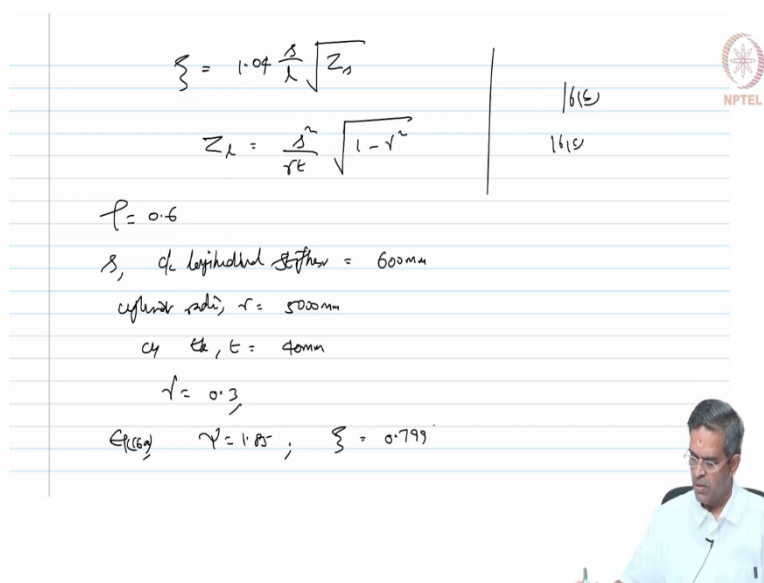 ξ = 1.04 s/l √Z_s
Z_l = s²/rt √1-ν²
16(c)
16(c)
NPTEL
ρ = 0.6
s, c/c longitudinal stiffener = 600mm
cylinder radi, r = 5000mm
cy tk, t = 40mm
ν = 0.3,
ψ = 1.85 ; ξ = 0.799